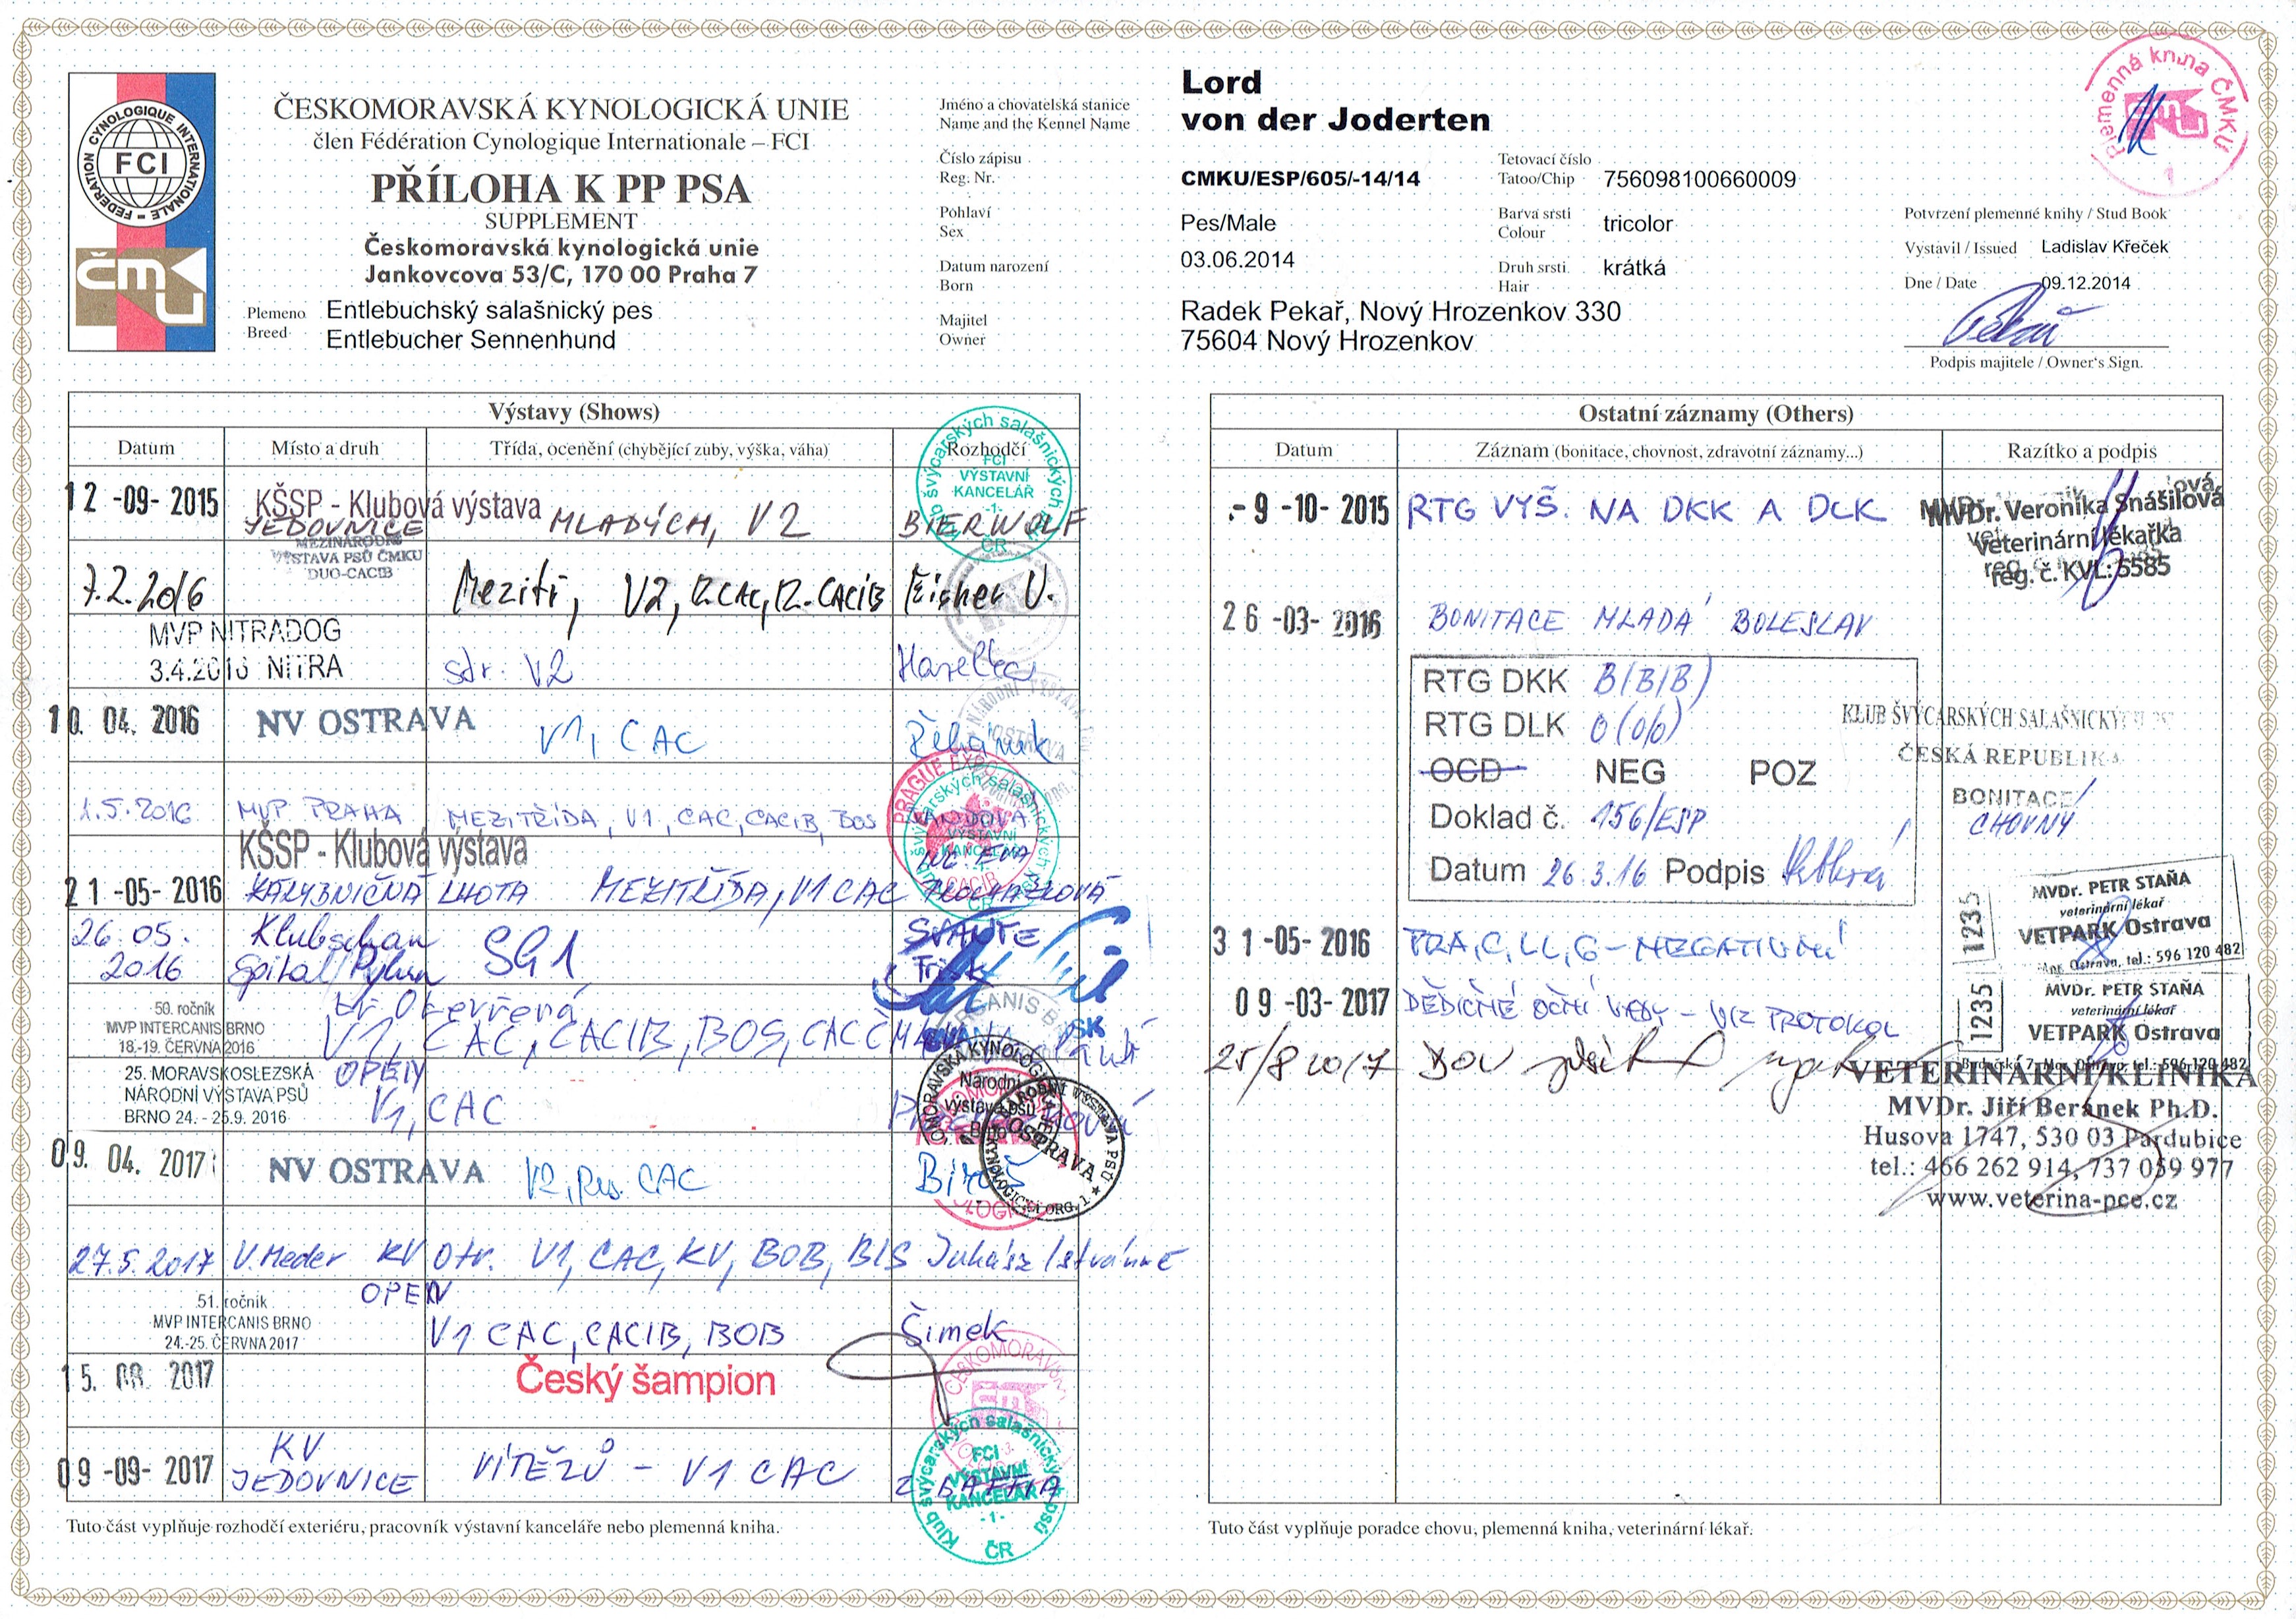 FEDERATION CYNOLOGIQUE INTERNATIONALE
FCI
čmku
ČESKOMORAVSKÁ KYNOLOGICKÁ UNIE
člen Fédération Cynologique Internationale – FCI
PŘÍLOHA K PP PSA
SUPPLEMENT
Českomoravská kynologická unie
Jankovcova 53/C, 170 00 Praha 7
Plemeno Entlebuchský salašnický pes
Breed Entlebucher Sennenhund
Jméno a chovatelská stanice
Name and the Kennel Name
Lord
von der Joderten
Číslo zápisu
Reg. Nr.
CMKU/ESP/605/-14/14
Tetovací číslo
Tatoo/Chip 756098100660009
Pohlaví
Sex
Pes/Male
Barva srsti
Colour
tricolor
Datum narození
Born
03.06.2014
Druh srsti
Hair
krátká
Majitel
Owner
Radek Pekař, Nový Hrozenkov 330
75604 Nový Hrozenkov
Plemenná kniha ČMKU
1
Potvrzení plemenné knihy / Stud Book
Vystavil / Issued Ladislav Křeček
Dne / Date 09.12.2014
Podpis majitele / Owner's Sign.
Výstavy (Shows)
Datum Místo a druh Třída, ocenění (chybějící zuby, výška, váha) Rozhodčí
12 -09- 2015 KŠSP - Klubová výstava
JEDOVNICE MLADÝCH, V2 BIERWOLF
Klub švýcarských salašnických
FCI
VÝSTAVNÍ
KANCELÁŘ
-1-
ČR
MEZINÁRODNÍ
VÝSTAVA PSŮ ČMKU
DUO-CACIB
7.2.2016 Mezitř, V2, R.CAC, R.CACIB Fischer U.
MVP NITRADOG
3.4.2016 NITRA sdr. V2 Havelka
10. 04. 2016 NV OSTRAVA V1, CAC
1.5.2016 MVP PRAHA MEZITŘÍDA, V1, CAC, CACIB, BOS
PRAGUE EXPO
CACIB
KŠSP - Klubová výstava
21 -05- 2016 LHOTA MEZITŘÍDA, V1 CAC
26.05. Klubschau
2016 Spital/Pyhrn SG1
50. ročník
MVP INTERCANIS BRNO
18.-19. ČERVNA 2016
tř Otevřená
V1, CAC, CACIB, BOS, CAC
25. MORAVSKOSLEZSKÁ
NÁRODNÍ VÝSTAVA PSŮ
BRNO 24. - 25.9. 2016
OPEN
V1, CAC
Národní
výstava psů
Brno
OSTRAVA
09. 04. 2017 NV OSTRAVA V2, Res. CAC
27.5.2017 V.Meder KV Otr. V1, CAC, KV, BOB, BIS Juhász Istvánné
51. ročník
MVP INTERCANIS BRNO
24.-25. ČERVNA 2017
OPEN
V1 CAC, CACIB, BOB Šimek
15. 08. 2017 Český šampion
09 -09- 2017 KV
JEDOVNICE VÍTĚZŮ - V1 CAC
Klub švýcarských salašnických psů
FCI
VÝSTAVNÍ
KANCELÁŘ
-1-
ČR
Tuto část vyplňuje rozhodčí exteriéru, pracovník výstavní kanceláře nebo plemenná kniha.
Ostatní záznamy (Others)
Datum Záznam (bonitace, chovnost, zdravotní záznamy...) Razítko a podpis
-9 -10- 2015 RTG VYŠ. NA DKK A DLK
MVDr. Veronika Snášilová
veterinární lékařka
reg. č. KVL: 5585
26 -03- 2016 BONITACE MLADÁ BOLESLAV
RTG DKK B(B/B)
RTG DLK 0(0/0)
OCD NEG POZ
Doklad č. 156/ESP
Datum 26.3.16 Podpis
KLUB ŠVÝCARSKÝCH SALAŠNICKÝCH PSŮ
ČESKÁ REPUBLIKA
BONITACE/
CHOVNÝ
31 -05- 2016 PRA, C, LL, G - NEGATIVNÍ
1235
MVDr. PETR STAŇA
veterinární lékař
VETPARK Ostrava
Ostrava, tel.: 596 120 482
09 -03- 2017 DĚDIČNÉ OČNÍ VADY - VIZ PROTOKOL
1235
MVDr. PETR STAŇA
veterinární lékař
VETPARK Ostrava
tel.: 596 120 482
25/8 2017 DOV
VETERINÁRNÍ KLINIKA
MVDr. Jiří Beránek Ph.D.
Husova 1747, 530 03 Pardubice
tel.: 466 262 914, 737 059 977
www.veterina-pce.cz
Tuto část vyplňuje poradce chovu, plemenná kniha, veterinární lékař.